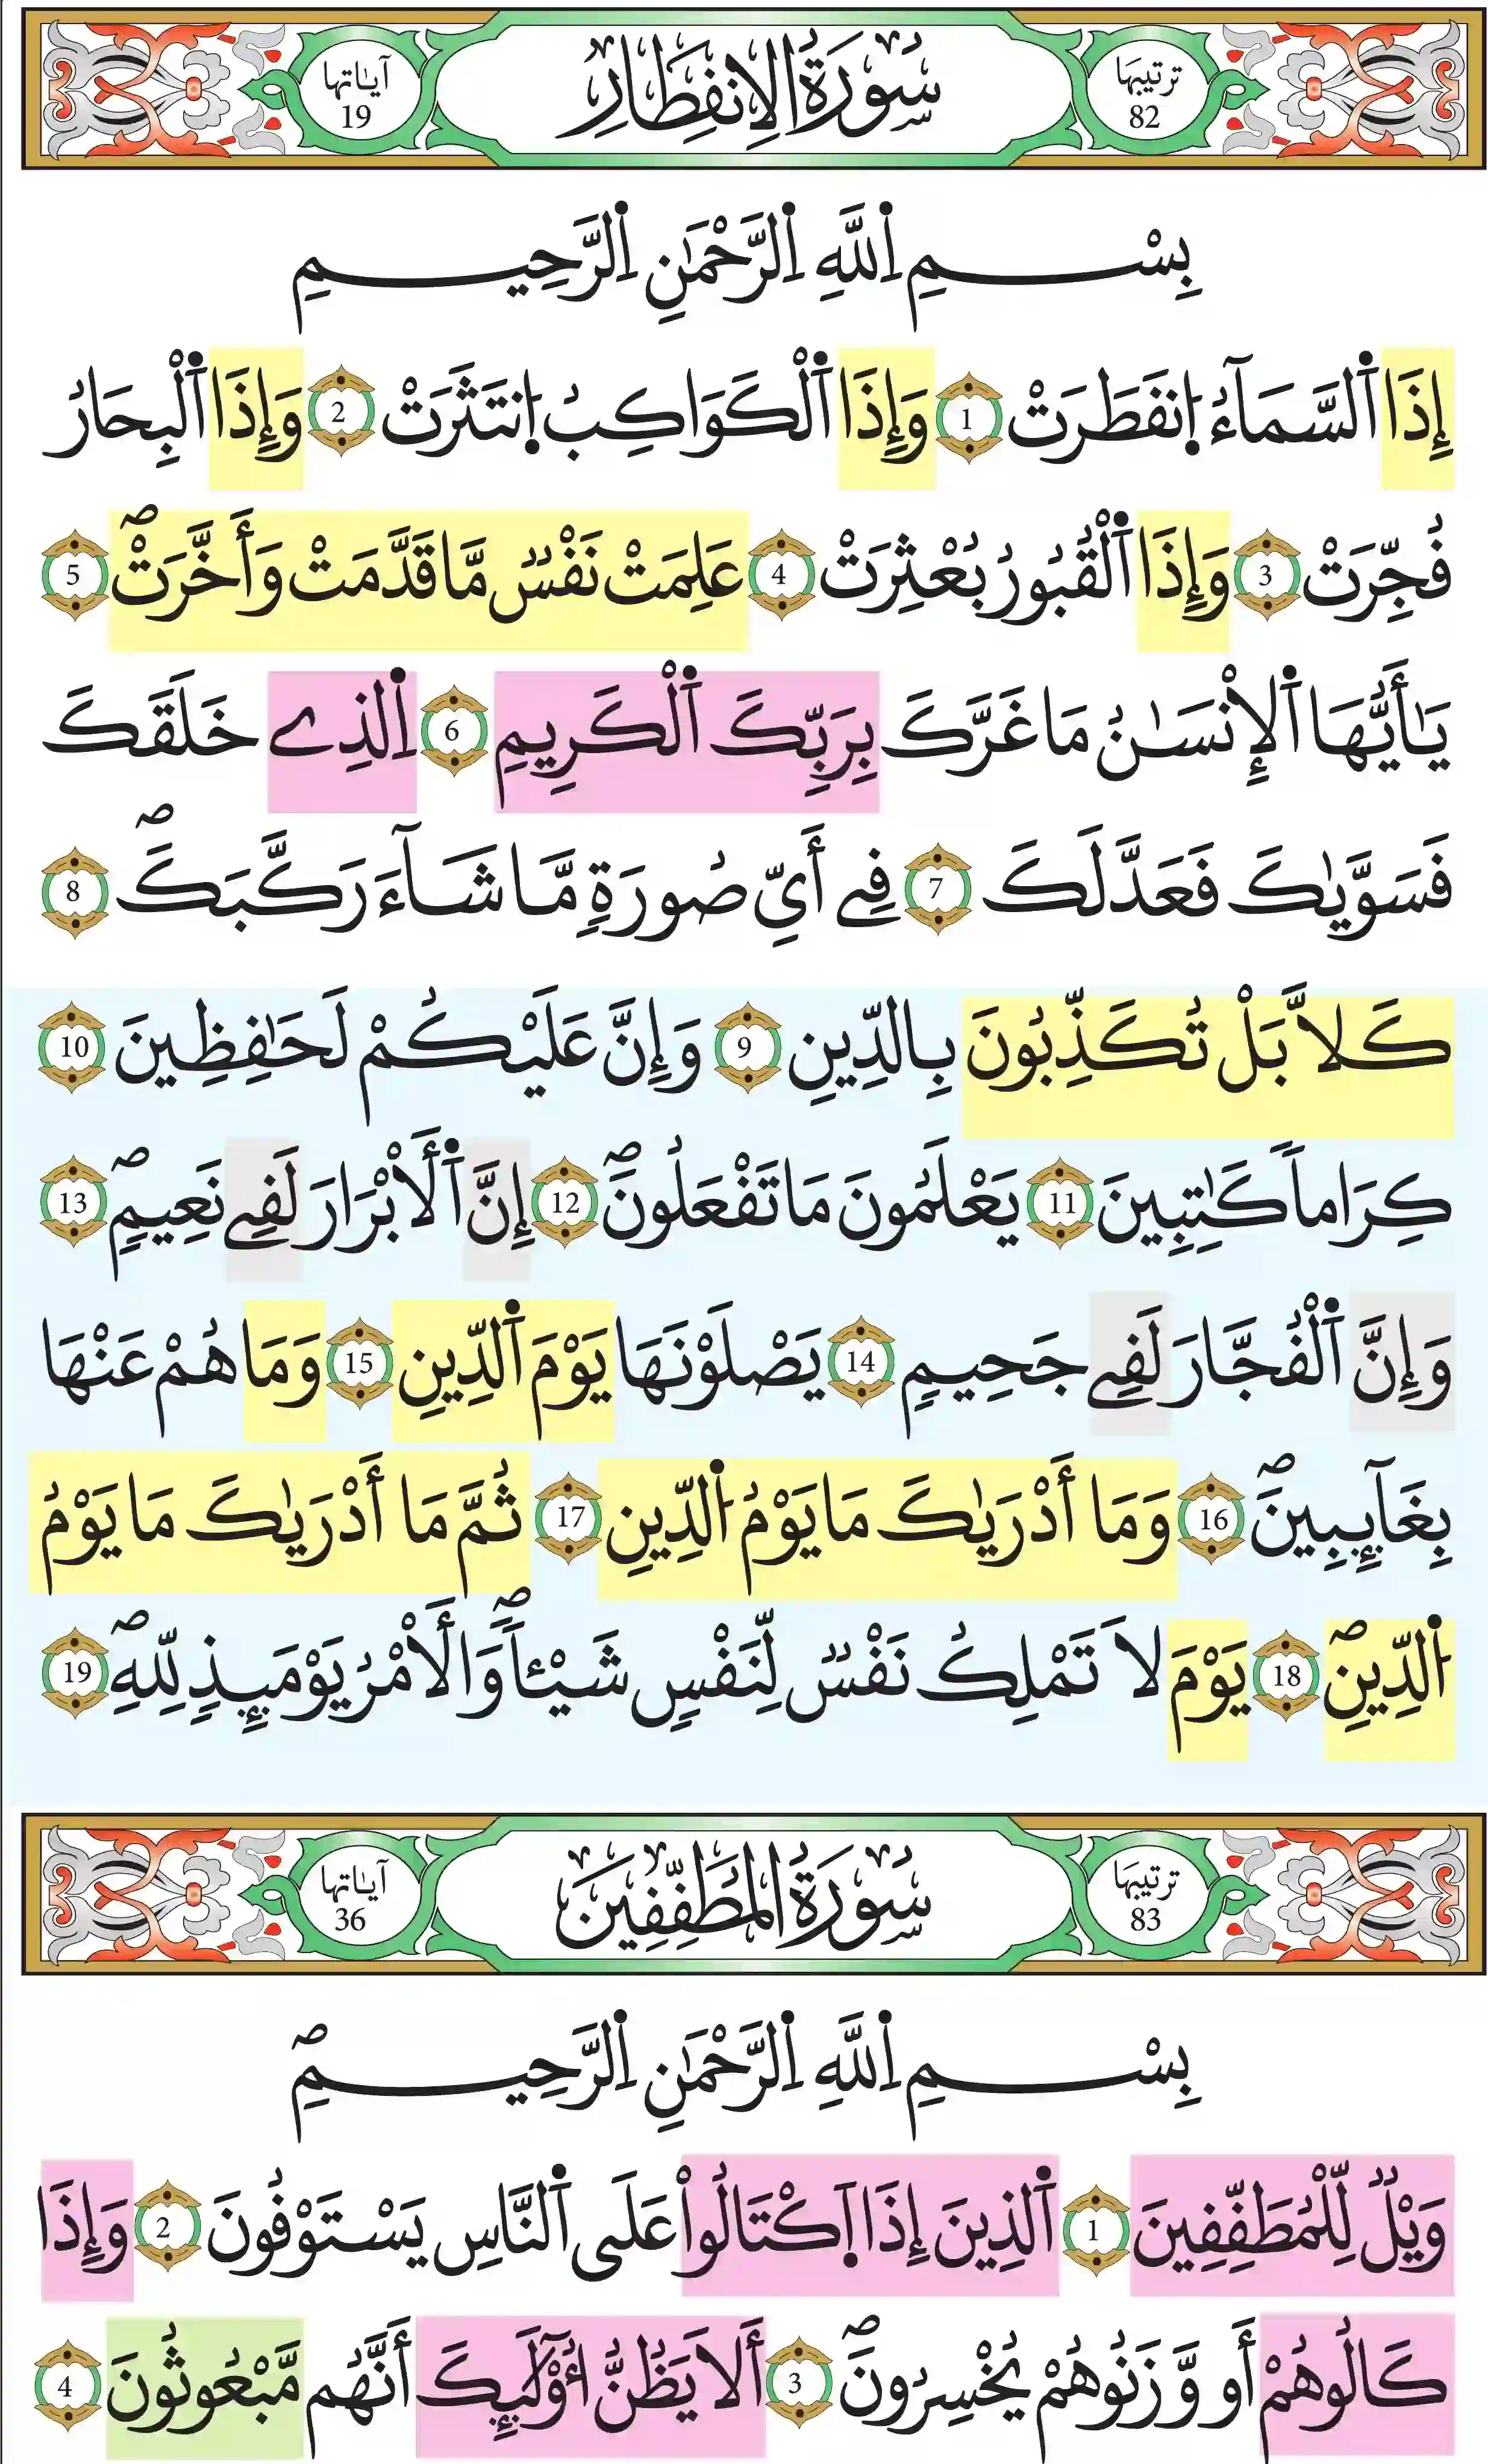 ترتيبها 82 سُورَةُ الِانفِطَارِ آياتها 19
بِسْمِ اِ۬للَّهِ اِ۬لرَّحْمَٰنِ اِ۬لرَّحِيمِ
إِذَا اَ۬لسَّمَآءُ اُ۪نفَطَرَتْ 1 وَإِذَا اَ۬لْكَوَاكِبُ اُ۪نتَثَرَتْ 2 وَإِذَا اَ۬لْبِحَارُ
فُجِّرَتْ 3 وَإِذَا اَ۬لْقُبُورُ بُعْثِرَتْ 4 عَلِمَتْ نَفْسٞ مَّا قَدَّمَتْ وَأَخَّرَتْۖ 5
يَٰأَيُّهَا اَ۬لْإِنْسَٰنُ مَا غَرَّكَ بِرَبِّكَ اَ۬لْكَرِيمِ 6 اِ۬لذِے خَلَقَكَ
فَسَوَّيٰكَ فَعَدَّلَكَ 7 فِے أَيِّ صُورَةٖ مَّا شَآءَ رَكَّبَكَۖ 8
كَلاَّ بَلْ تُكَذِّبُونَ بِالدِّينِ 9 وَإِنَّ عَلَيْكُمْ لَحَٰفِظِينَ 10
كِرَاماٗ كَٰتِبِينَ 11 يَعْلَمُونَ مَا تَفْعَلُونَۖ 12 إِنَّ اَ۬لَابْرَارَ لَفِے نَعِيمٖۖ 13
وَإِنَّ اَ۬لْفُجَّارَ لَفِے جَحِيمٖ 14 يَصْلَوْنَهَا يَوْمَ اَ۬لدِّينِ 15 وَمَا هُمْ عَنْهَا
بِغَآئِبِينَۖ 16 وَمَا أَدْرَيٰكَ مَا يَوْمُ اُ۬لدِّينِ 17 ثُمَّ مَا أَدْرَيٰكَ مَا يَوْمُ
اُ۬لدِّينِۖ 18 يَوْمَ لَا تَمْلِكُ نَفْسٞ لِّنَفْسٖ شَيْـٔاٗۖ وَالَامْرُ يَوْمَئِذٖ لِّلهِۖ 19
ترتيبها 83 سُورَةُ المُطَفِّفِينَ آياتها 36
بِسْمِ اِ۬للَّهِ اِ۬لرَّحْمَٰنِ اِ۬لرَّحِيمِۖ
وَيْلٞ لِّلْمُطَفِّفِينَ 1 اَ۬لذِينَ إِذَا اَ۪كْتَالُواْ عَلَى اَ۬لنَّاسِ يَسْتَوْفُونَ 2 وَإِذَا
كَالُوهُمْ أَو وَّزَنُوهُمْ يُخْسِرُونَۖ 3 أَلَا يَظُنُّ أُوْلَٰٓئِكَ أَنَّهُم مَّبْعُوثُونَ 4